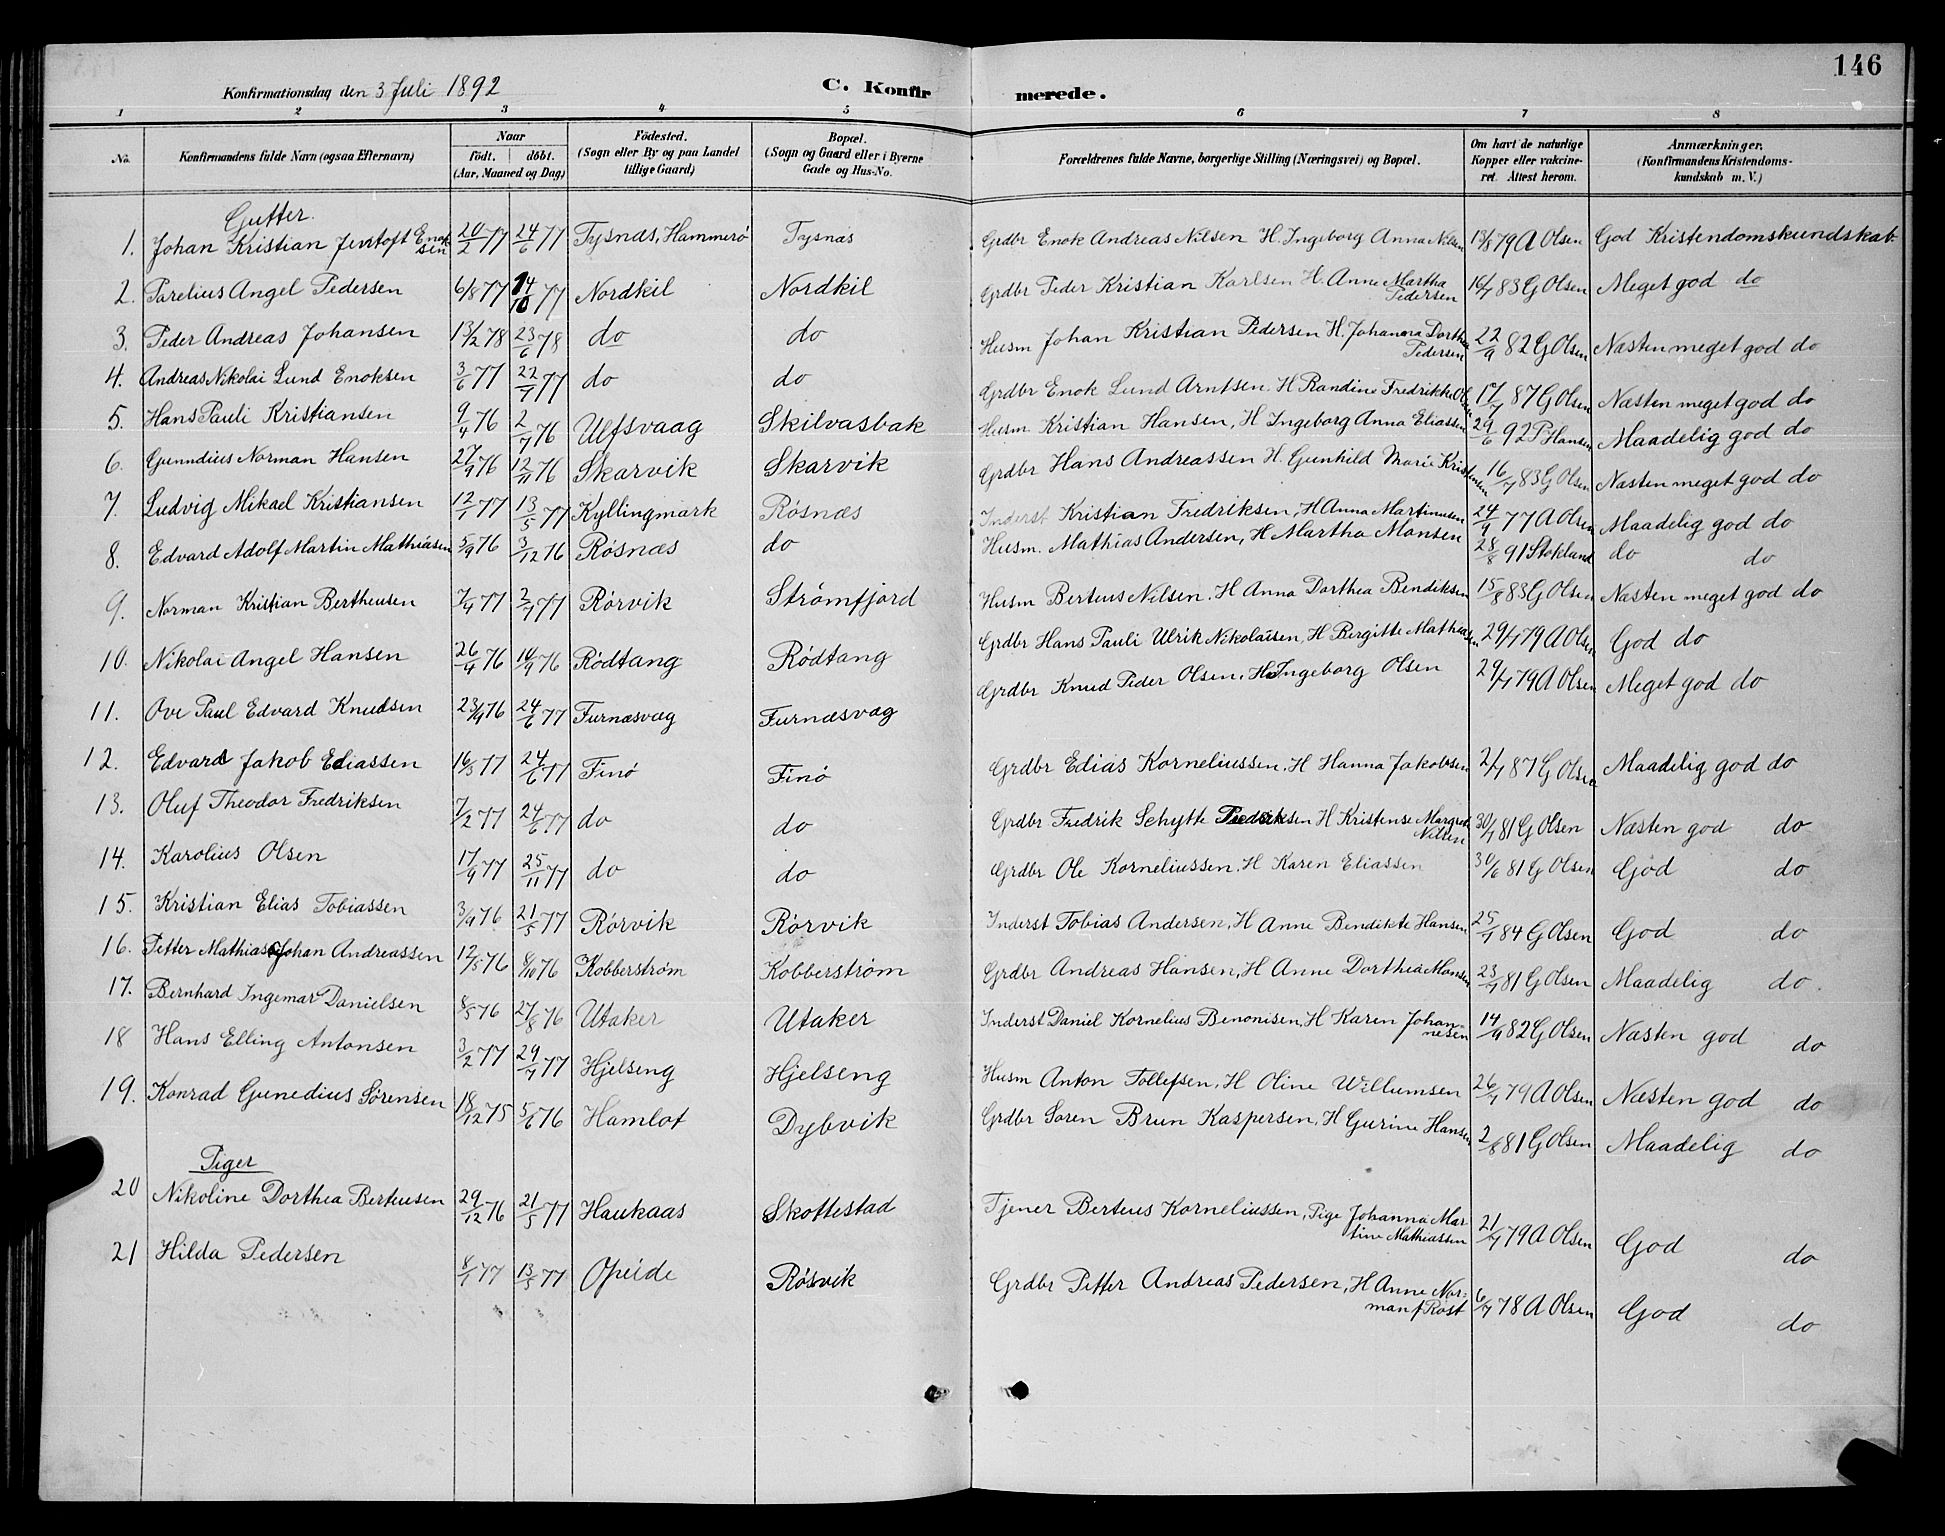 146
Konfirmationsdag den 3 Juli 1892
C. Konfirmerede.
1 2 3 4 5 6 7 8
No. Konfirmandens fulde Navn (ogsaa Efternavn) Naar födt. döbt. (Aar, Maaned og Dag) Födested. (Sogn eller By og paa Landet tillige Gaard) Bopæl. (Sogn og Gaard eller i Byerne Gade og Hus-No. Forældrenes fulde Navne, borgerlige Stilling (Næringsvei) og Bopæl. Om havt de naturlige Kopper eller vakcineret. Attest herom. Anmærkninger. (Konfirmandens Kristendomskundskab m. V.)
Gutter.
1. Johan Kristian Jentoft Enoksen 20/2 77 24/6 77 Tysnæs, Hammerö Tysnæs Grdbr Enok Andreas Nilsen H. Ingeborg Anna Nilsen 13/8 79 A Olsen God Kristendomskundskab
2. Parelius Angel Pedersen 6/8 77 14/10 77 Nordkil Nordkil Grdbr Peder Kristian Karlsen H. Anne Martha Pedersen 16/7 83 G Olsen Meget god do
3. Peder Andreas Johansen 13/2 78 23/6 78 do do Husm Johan Kristian Pedersen H. Johanna Dorthea Pedersen 22/9 82 G Olsen Næsten meget god do
4. Andreas Nikolai Lund Enoksen 3/6 77 22/7 77 do do Grdbr Enok Lund Arntsen H Randine Fredrikke Olsen 17/7 87 G Olsen Næsten meget god do
5. Hans Pauli Kristiansen 9/4 76 2/7 76 Ulfsvaag Skilvasbak Husm Kristian Hansen, H Ingeborg Anna Eliassen 29/6 92 P Hansen Maadelig god do
6. Gunndius Norman Hansen 27/9 76 12/11 76 Skarvik Skarvik Grdbr Hans Andreassen H. Gunhild Marie Kristensen 16/7 83 G Olsen Næsten meget god do
7. Ludvig Mikael Kristiansen 12/1 77 13/5 77 Kyllingmark Røsnæs Inderst Kristian Fredriksen, H Anna Martinusen 24/9 77 A Olsen Maadelig god do
8. Edvard Adolf Martin Mathiasen 5/9 76 3/12 76 Røsnæs do Husm. Mathias Andersen, H Martha Monsen 28/8 91 Stokland do do
9. Norman Kristian Bertheusen 7/4 77 2/7 77 Rörvik Strømfjord Husm Berteus Nilsen. H Anna Dorthea Bendiksen 15/8 83 G Olsen Næsten meget god do
10. Nikolai Angel Hansen 26/4 76 10/9 76 Rödtang Rödtang Grdbr Hans Pauli Ulrik Nikolaisen, H Bergitte Mathiasen 29/7 79 A Olsen God do
11. Ove Paul Edvard Knudsen 23/9 76 24/6 77 Furnæsvæg Furnæsvæg Grdbr Knud Peder Olsen, H Ingeborg Olsen 29/7 79 A Olsen Meget god do
12. Edvard Jakob Ediassen 16/3 77 24/6 77 Finö Finö Grdbr Edias Korneliussen, H Hanna Jakobsen 2/7 87 G Olsen Maadelig god do
13. Oluf Theodor Fredriksen 7/2 77 24/6 77 do do Grdbr Fredrik Schytte H Kristense Margrete Nilsen 30/7 81 G Olsen Næsten god do
14. Karolius Olsen 17/9 77 25/11 77 do do Grdbr Ole Korneliussen, H Karen Eliassen 30/6 81 G Olsen God do
15. Kristian Elias Tobiassen 3/9 76 21/5 77 Rörvik Rörvik Inderst Tobias Andersen, H Anne Bendikte Hansen 25/7 84 G Olsen God do
16. Petter Mathias Johan Andreassen 12/5 76 8/10 76 Kobberstrøm Kobberstrøm Grdbr Andreas Hansen, H Anne Dorthea Monsen 23/7 81 G Olsen Maadelig do.
17. Bernhard Ingemar Danielsen 8/5 76 27/8 76 Utaker Utaker Inderst Daniel Kornelius Benonisen, H Karen Johannesen 14/9 82 G Olsen Næsten god do
18 Hans Elling Antonsen 3/2 77 29/7 77 Hjelseng Hjelseng Husm Anton Tollefsen, H Oline Willumsen 26/7 79 A Olsen Næsten god do
19. Konrad Gunedius Sörensen 18/12 75 5/6 76 Hamlot Dybvik Grdbr Soren Brun Kaspersen, H Gurine Hansen 2/8 81 G Olsen Maadelig do
Piger
20 Nikoline Dorthea Berteusen 29/12 76 21/5 77 Haukaas Skottestad Tjener Berteus Korneliussen, Pige Johanna Martine Mathiassen 21/7 79 A Olsen God do
21 Hilda Pedersen 8/1 77 13/5 77 Opeide Røsvik Grdbr Petter Andreas Pedersen, H Anne Norman f Rost 6/7 78 A Olsen God do